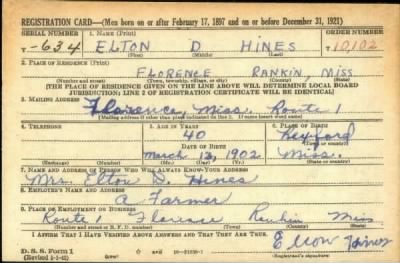 REGISTRATION CARD—(Men born on or after February 17, 1897 and on or before December 31, 1921)
SERIAL NUMBER 1. NAME (Print) ORDER NUMBER
T-634 ELTON D HINES 10,102
(First) (Middle) (Last)
2. PLACE OF RESIDENCE (Print)
FLORENCE RANKIN, MISS
(Number and street) (Town, township, village, or city) (County) (State)
(THE PLACE OF RESIDENCE GIVEN ON THE LINE ABOVE WILL DETERMINE LOCAL BOARD
JURISDICTION; LINE 2 OF REGISTRATION CERTIFICATE WILL BE IDENTICAL)
3. MAILING ADDRESS
Florence, Miss. Route 1
(Mailing address if other than place indicated on line 2. If same insert word same)
4. TELEPHONE 5. AGE IN YEARS 6. PLACE OF BIRTH
40
DATE OF BIRTH (Town or county)
March 13, 1902 Miss.
(Exchange) (Number) (Mo.) (Day) (Yr.) (State or country)
7. NAME AND ADDRESS OF PERSON WHO WILL ALWAYS KNOW YOUR ADDRESS
Mrs. Elton D. Hines
8. EMPLOYER'S NAME AND ADDRESS
A Farmer
9. PLACE OF EMPLOYMENT OR BUSINESS
Route 1 Florence Rankin Miss
(Number and street or R. F. D. number) (Town) (County) (State)
I AFFIRM THAT I HAVE VERIFIED ABOVE ANSWERS AND THAT THEY ARE TRUE.
D. S. S. Form 1